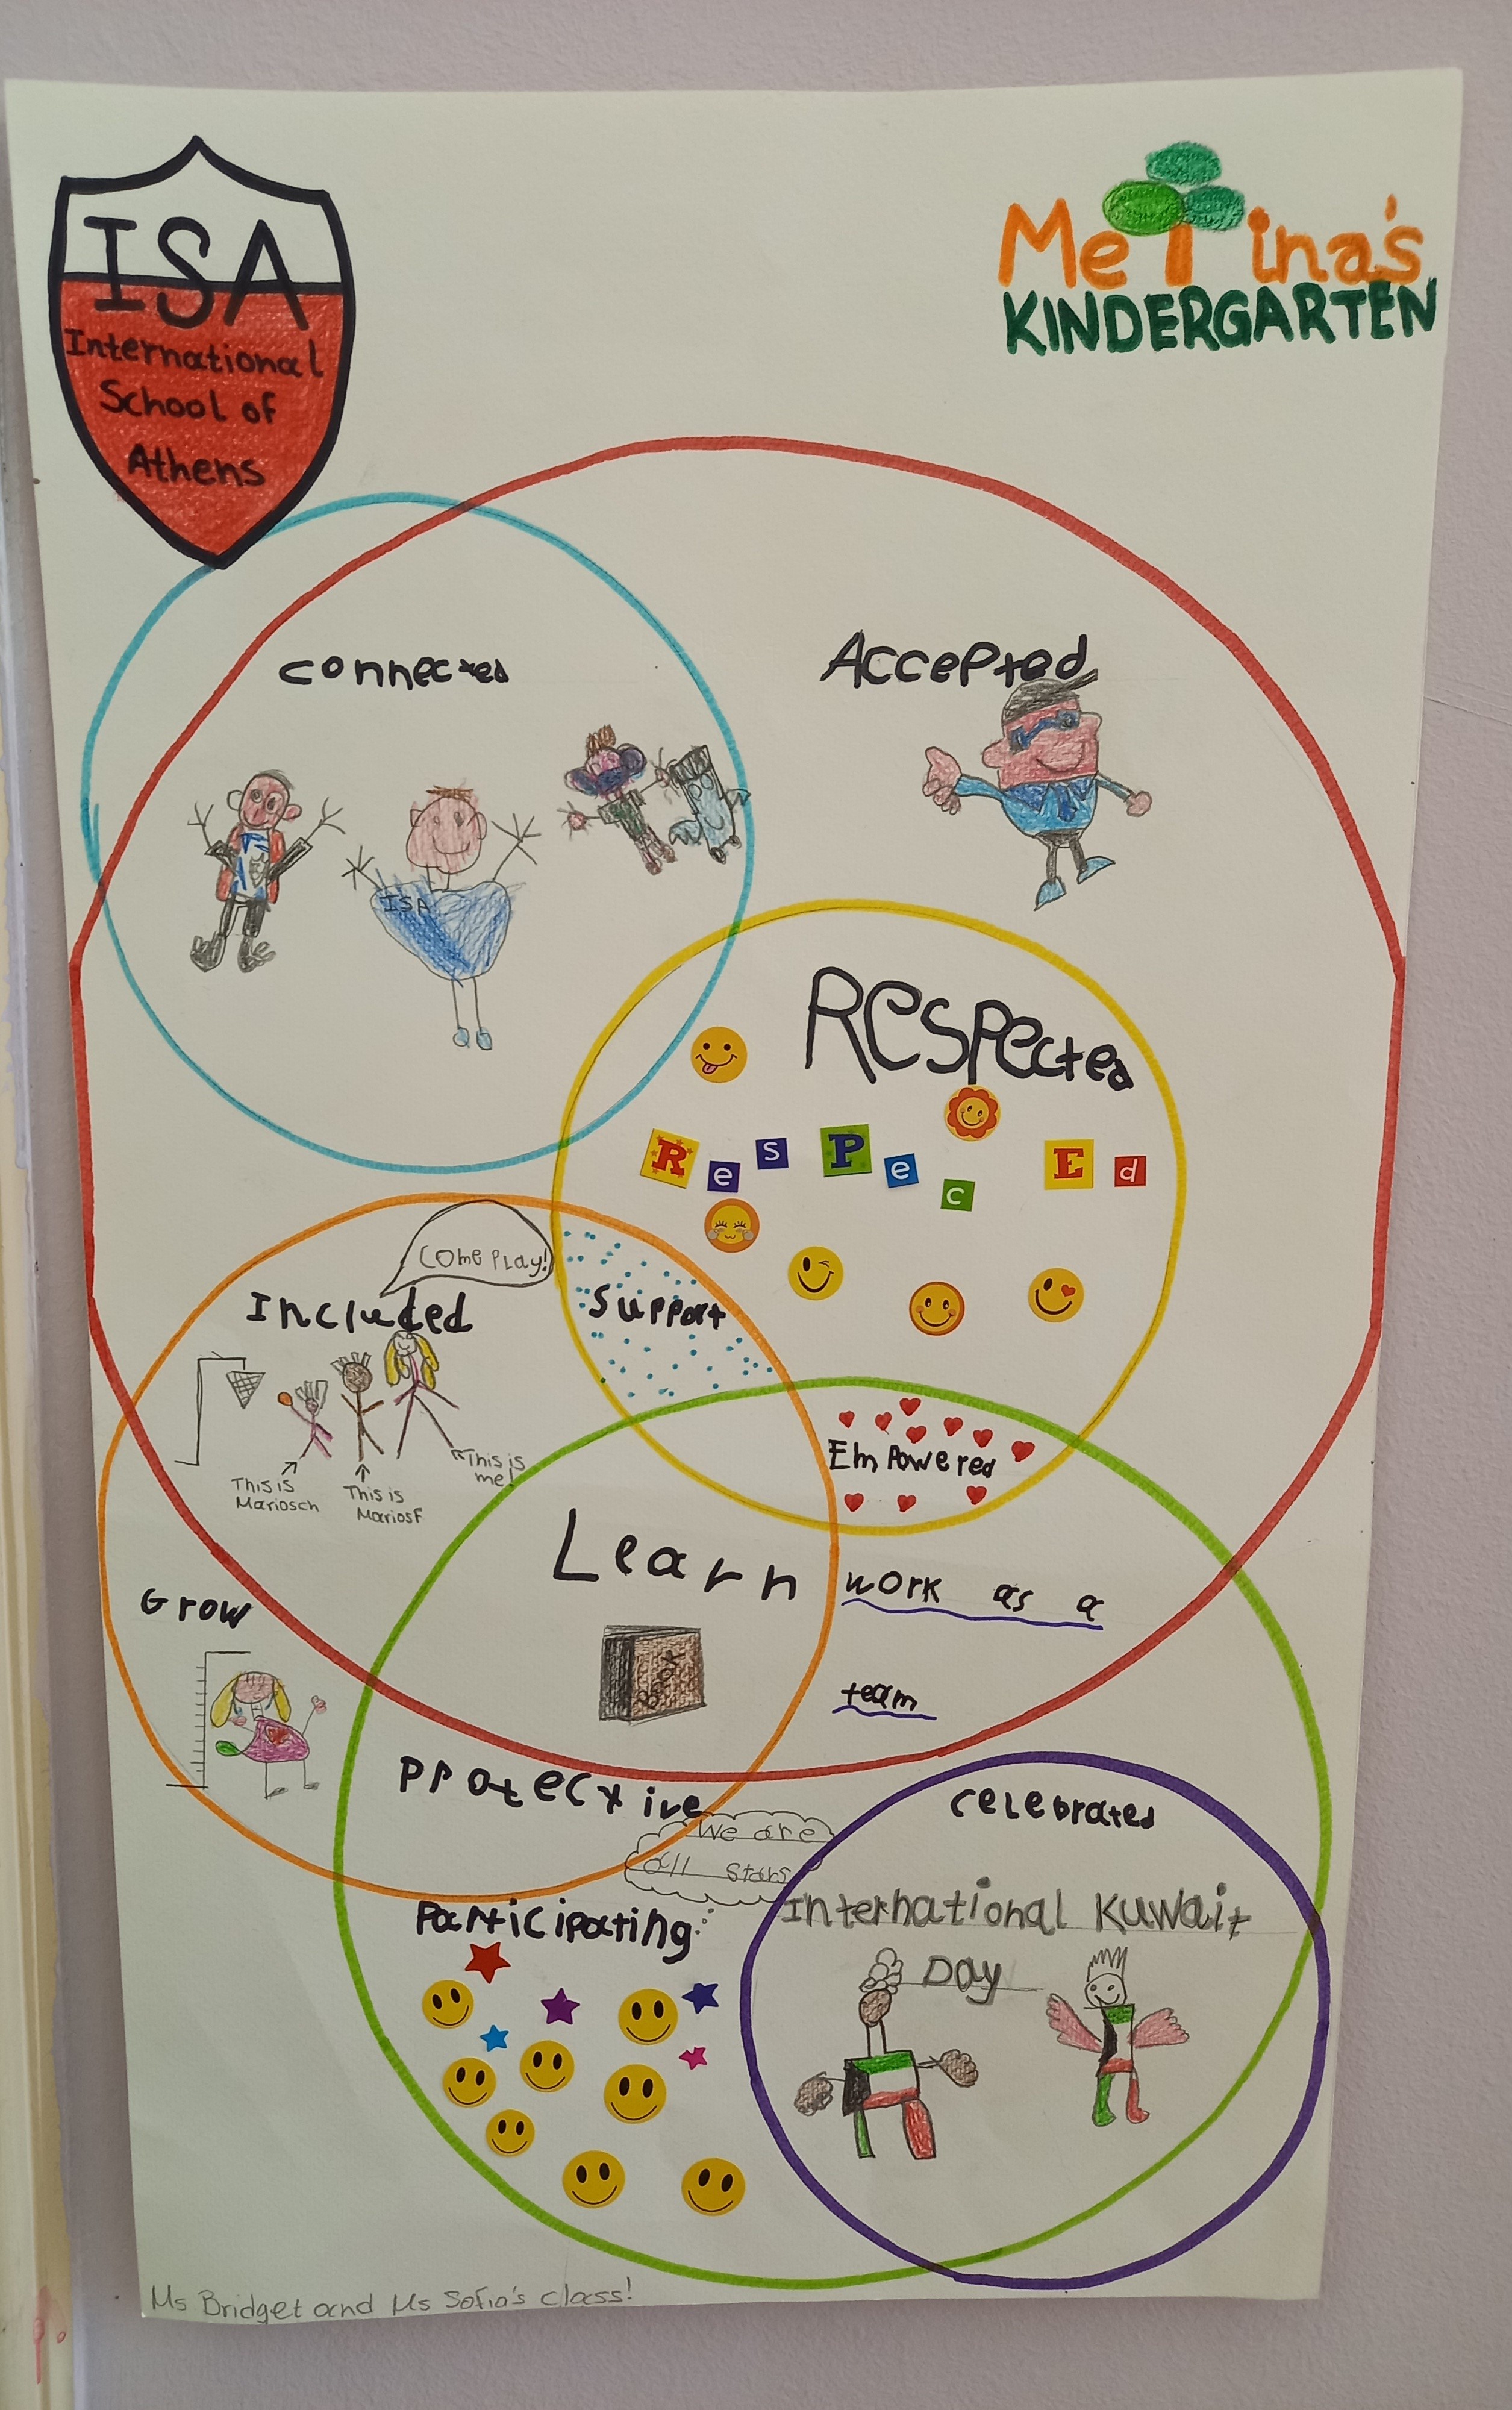 ISA
International
School of
Athens
MeTina's
KINDERGARTEN
connected
Accepted
ISA
Respected
R e s P e c E d
come play!
Included
support
This is
Mariosch
This is
MariosF
This is
me!
EmPowered
Learn
work as a
Book
team
Grow
Protective
We are
all stars
celebrated
International Kuwait
Day
Participating
Ms Bridget and Ms Sofia's class!